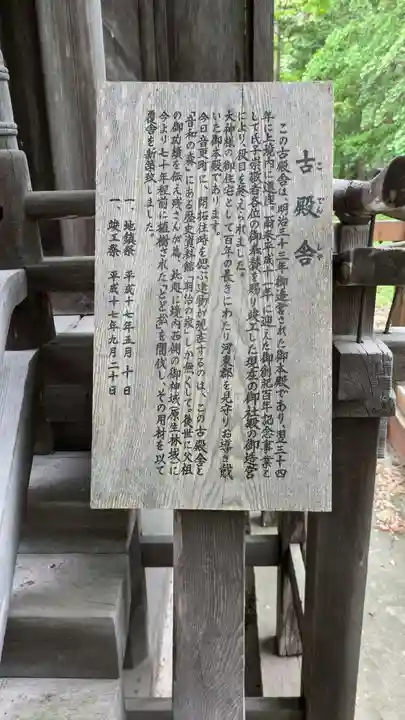 古殿舎
こでんしゃ
この古殿舎は、明治三十三年御造営された御本殿であり、翌三十四
年に上境内に遷座。爾来平成十一年に迎えた御創祀百年記念事業と
して氏子崇敬者各位の御奉賛を賜り竣工した現在の御社殿の御造営
により、役目を終えられました。
大神様の御住宅として百年の長きにわたり河東郡を見守りお導き戴
いた御本殿であります。
今日音更町に、開拓往時を偲ぶ建物が現在するのは、この古殿舎と
「音和の森」にある歴史資料館「明治の蔵」しか無くして。後世に父祖
の御功績を伝え残さんが為、此処に境内西側の御神域(原生林域)に
今より七十年程前に植樹された「とど松」を間伐し、その用材を以て
覆舎を新築致しました。
一、地鎮祭 平成十七年五月 十日
一、竣工祭 平成十七年九月二十日